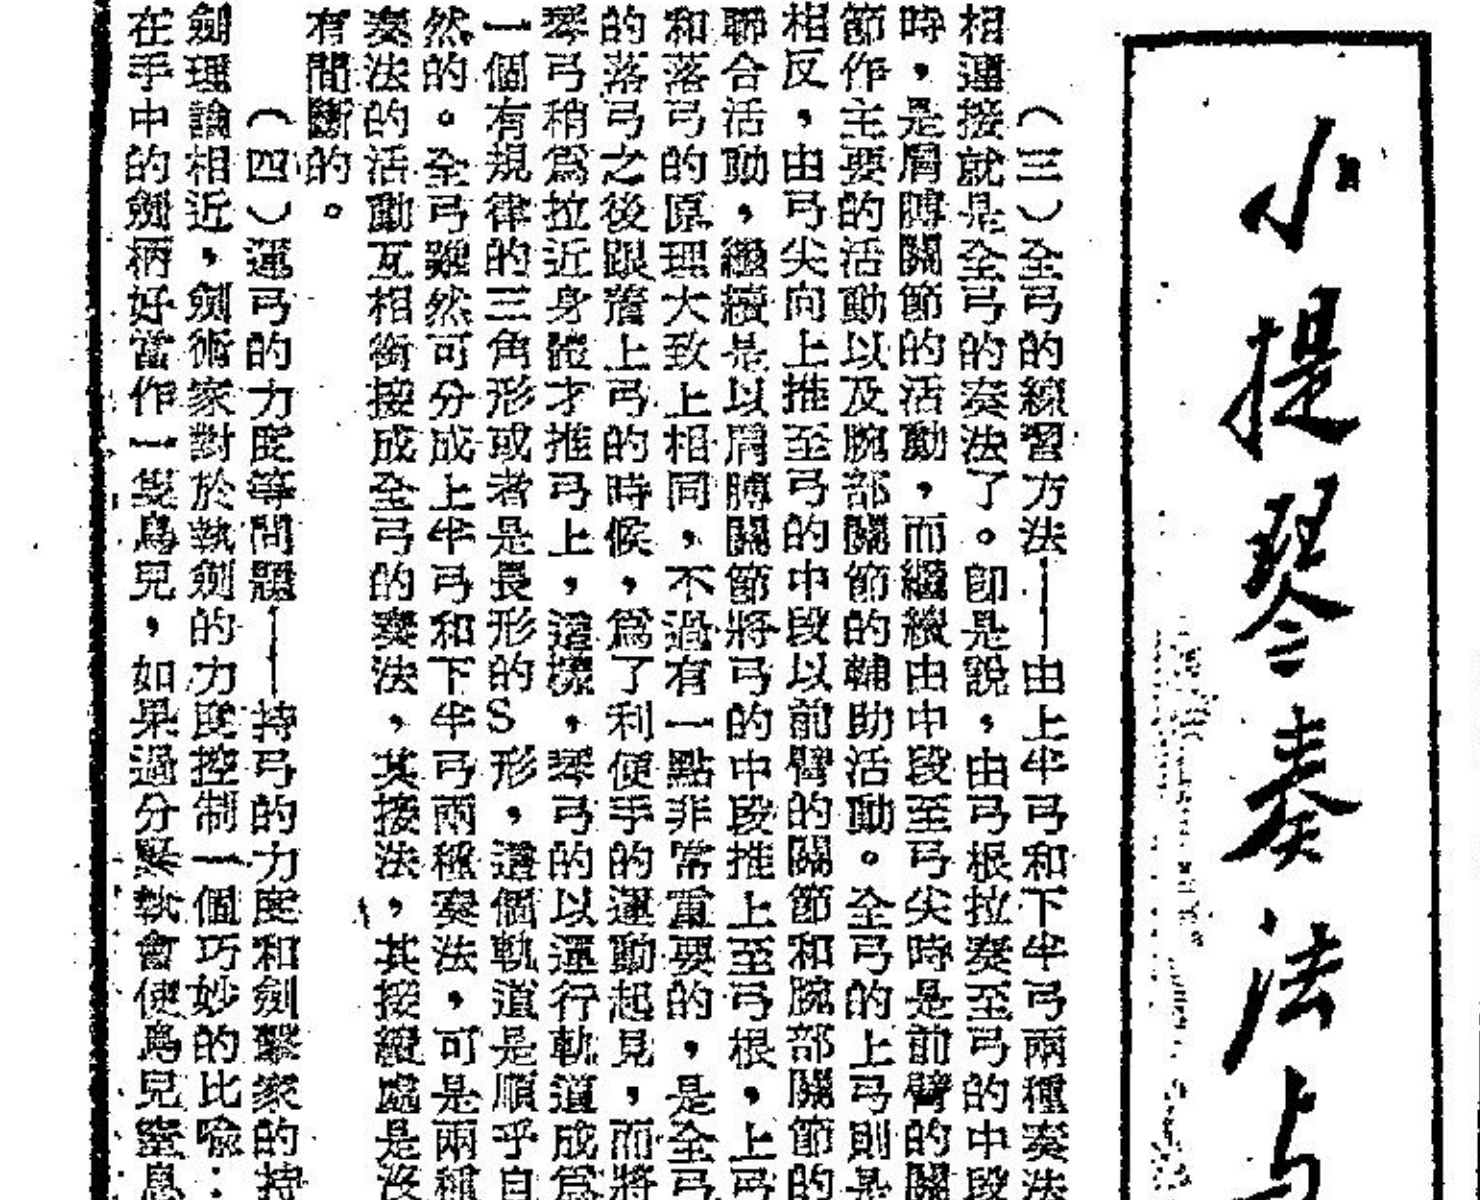 小提琴奏法与
（三）全弓的練習方法——由上半弓和下半弓兩種奏法
相連接就是全弓的奏法了。卽是說，由弓根拉奏至弓的中段
時，是肩膊關節的活動，而繼續由中段至弓尖時是前臂的關
節作主要的活動以及腕部關節的輔助活動。全弓的上弓則是
相反，由弓尖向上推至弓的中段以前臂的關節和腕部關節的
聯合活動，繼續是以肩膊關節將弓的中段推上至弓根，上弓
和落弓的原理大致上相同，不過有一點非常重要的，是全弓
的落弓之後跟着上弓的時候，爲了利便手的運動起見，而將
琴弓稍爲拉近身體才推弓上，這樣，琴弓的以運行軌道成爲
一個有規律的三角形或者是長形的S形，這個軌道是順乎自
然的。全弓雖然可分成上半弓和下半弓兩種奏法，可是兩種
奏法的活動互相銜接成全弓的奏法，其接法，其接縫處是沒
有間斷的。
（四）運弓的力度等問題——持弓的力度和劍擊家的持
劍理論相近，劍術家對於執劍的力度控制一個巧妙的比喩：
在手中的劍柄好當作一隻鳥兒，如果過分緊執會使鳥兒窒息